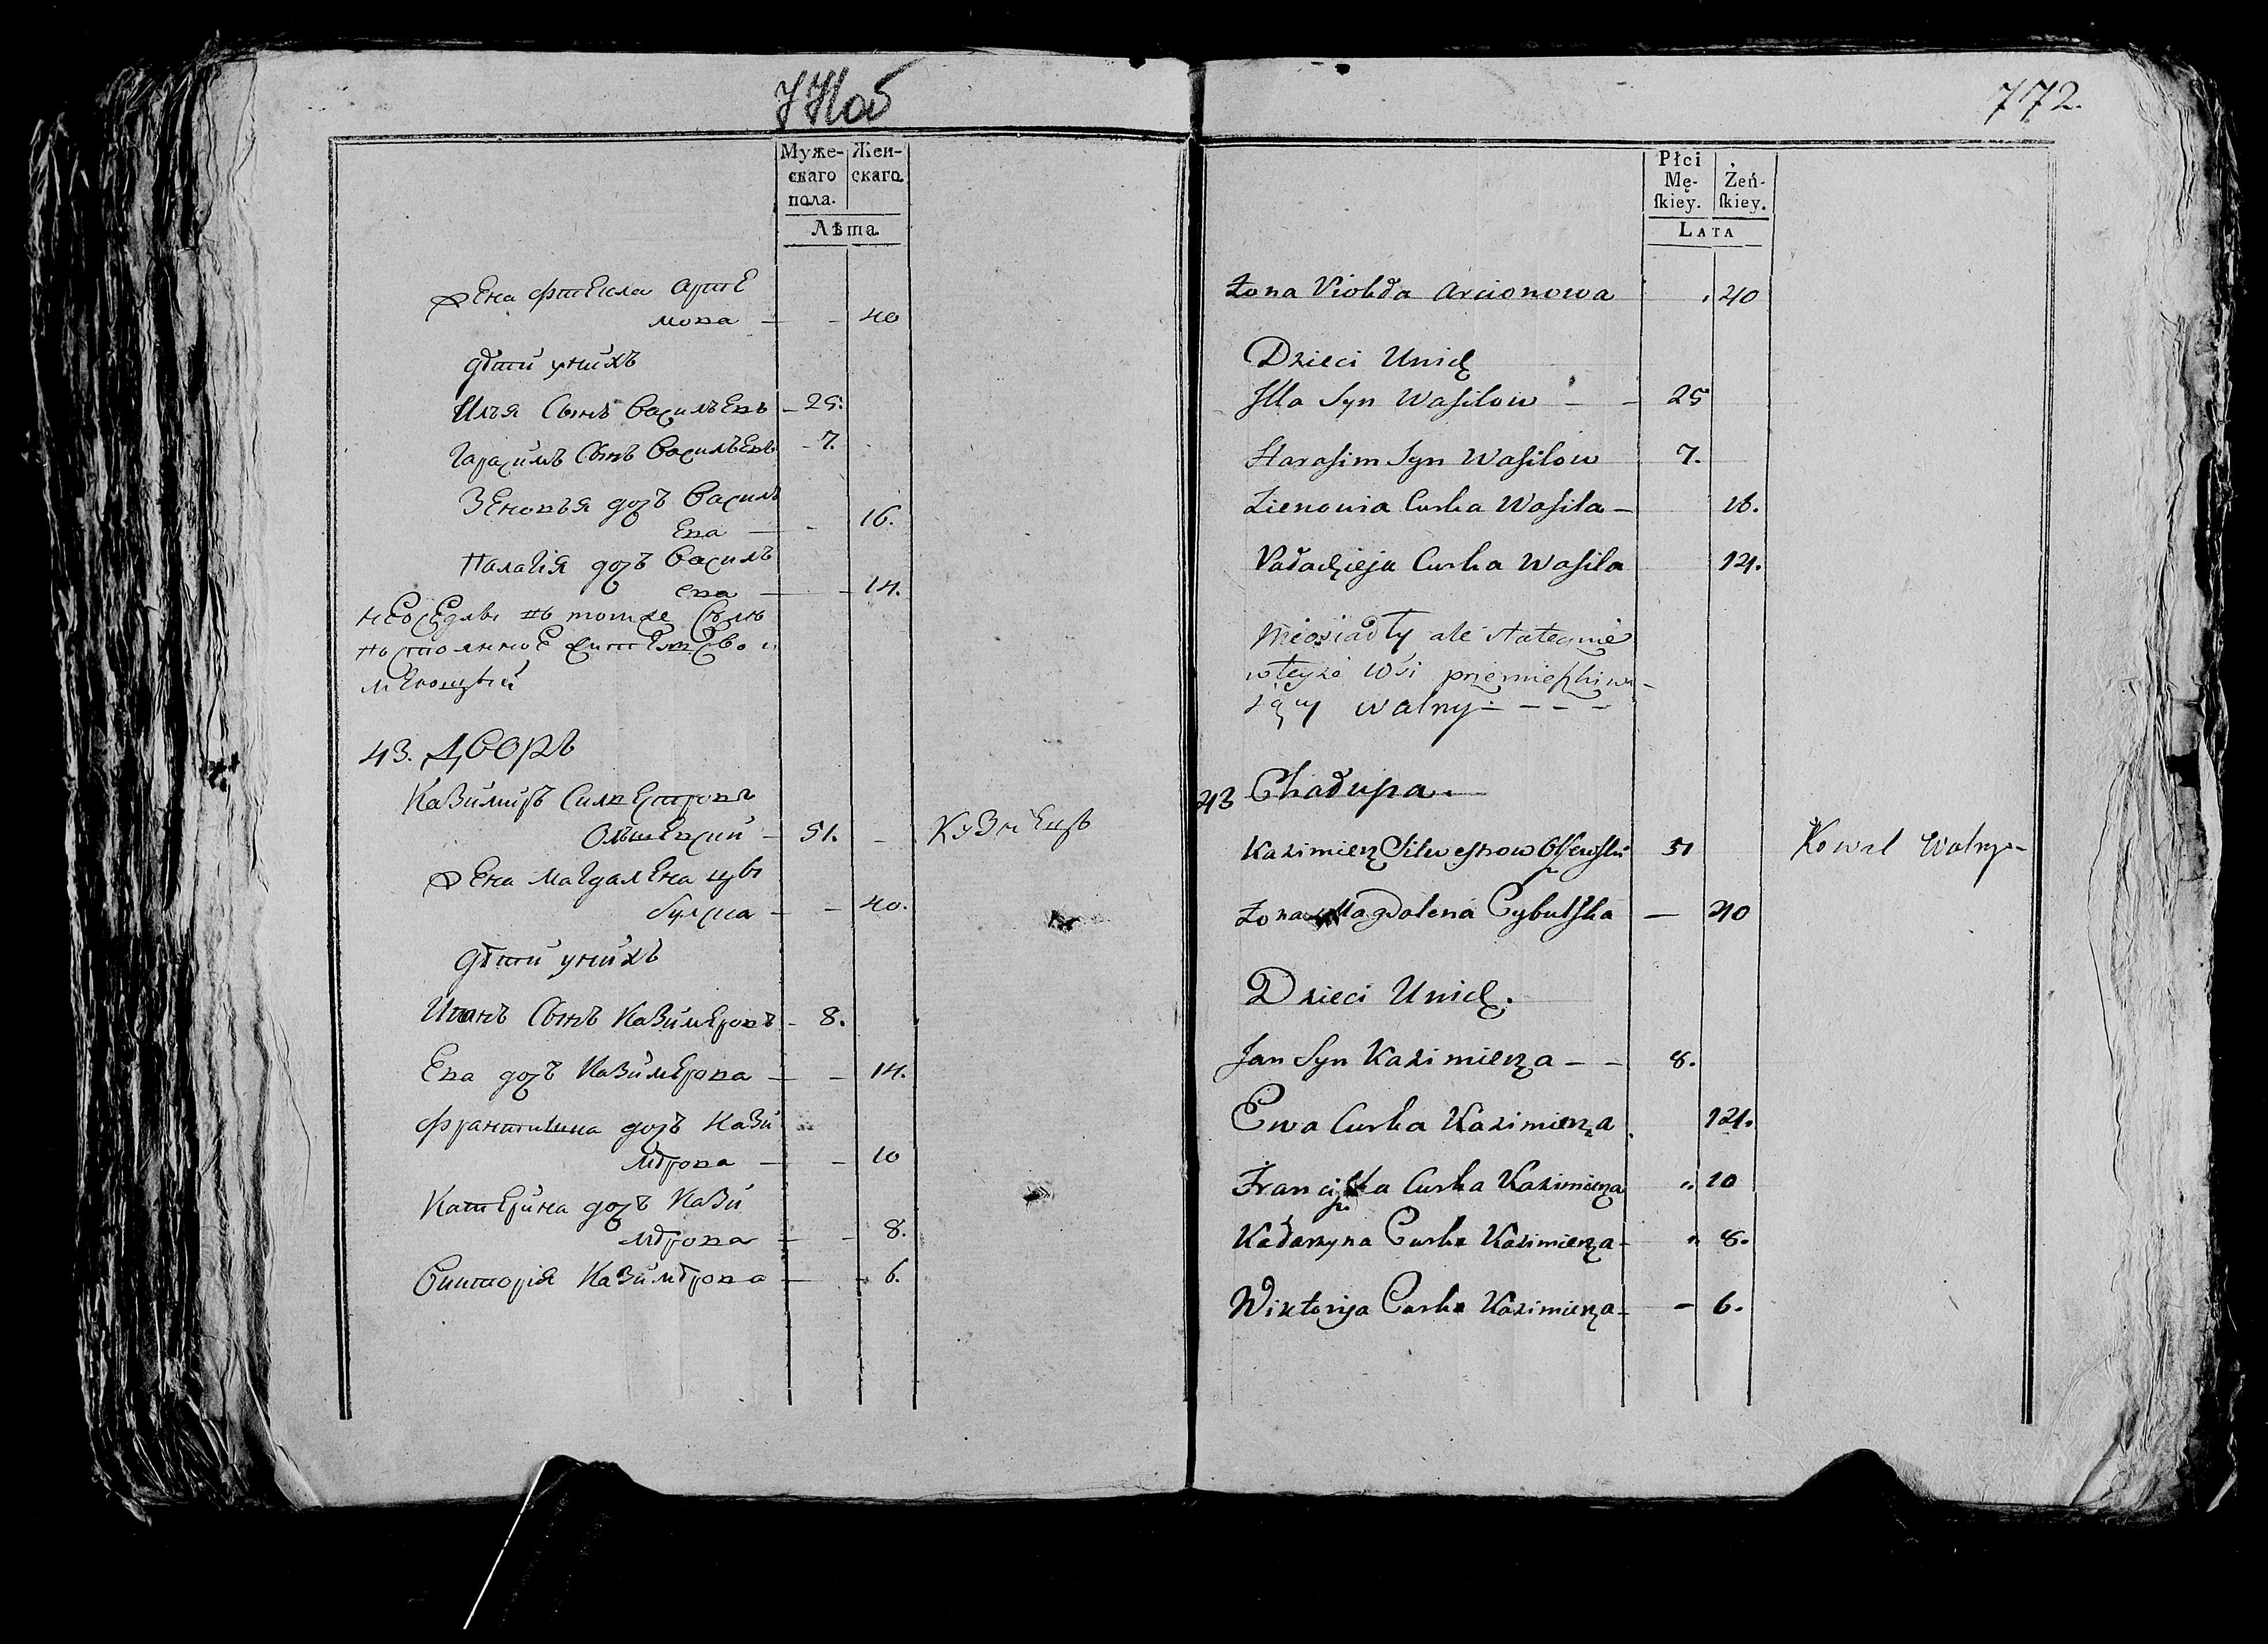 772.
Муже-
скаго
пола.
Жен-
скаго.
Лѣта.
Жена Фтекла Арте
мова — - 40
дѣти унихъ
Илья Сынъ Василъевъ - 25.
Гарасимъ Сынъ Василъевъ - 7.
Зеновъя дочъ Василъ
ева — - 16.
Палагія дочъ Василъ
ева — - 14.
неоседлы въ томже Селѣ
43. Дворъ
Казимиръ Силвестровъ
Олшевский - 51. - Кузнецъ
Жена Магдалена Цы
булска - - 40.
дѣти унихъ
Иванъ Сынъ Казимеровъ - 8.
Ева дочъ Казимерова — - 14.
дочъ Кази
мѣрова — - 10
Катерина дочъ Кази
мѣрова — - 8.
Викторія Казимѣрова — - 6.
Płci
Mę-
ſkiey.
Żeń-
ſkiey.
LATA
Żona Arcionowa 40
Dzieci Unich
Illa Syn Wasilow - - 25
Harasim Syn Wasilow 7.
Zienowia Curka Wasila - 16.
Curka Wasila 14.
Nieosiadły ale statecznie
wteyże Wsi przemieszkiwa-
iący wolny - - - -
43 Chadupa.
Kazimierz Silwestrow Olszewski 51 Kowal Wolny -
Żona Magdalena Cybulska — 40
Dzieci Unich.
Jan Syn Kazimierza - - 8.
Ewa Curka Kazimierza 14.
Franciszka Curka Kazimierza 10
Kadarzyna Curka Kazimierza - 8.
Wiktoryja Curka Kazimierza - - 6.